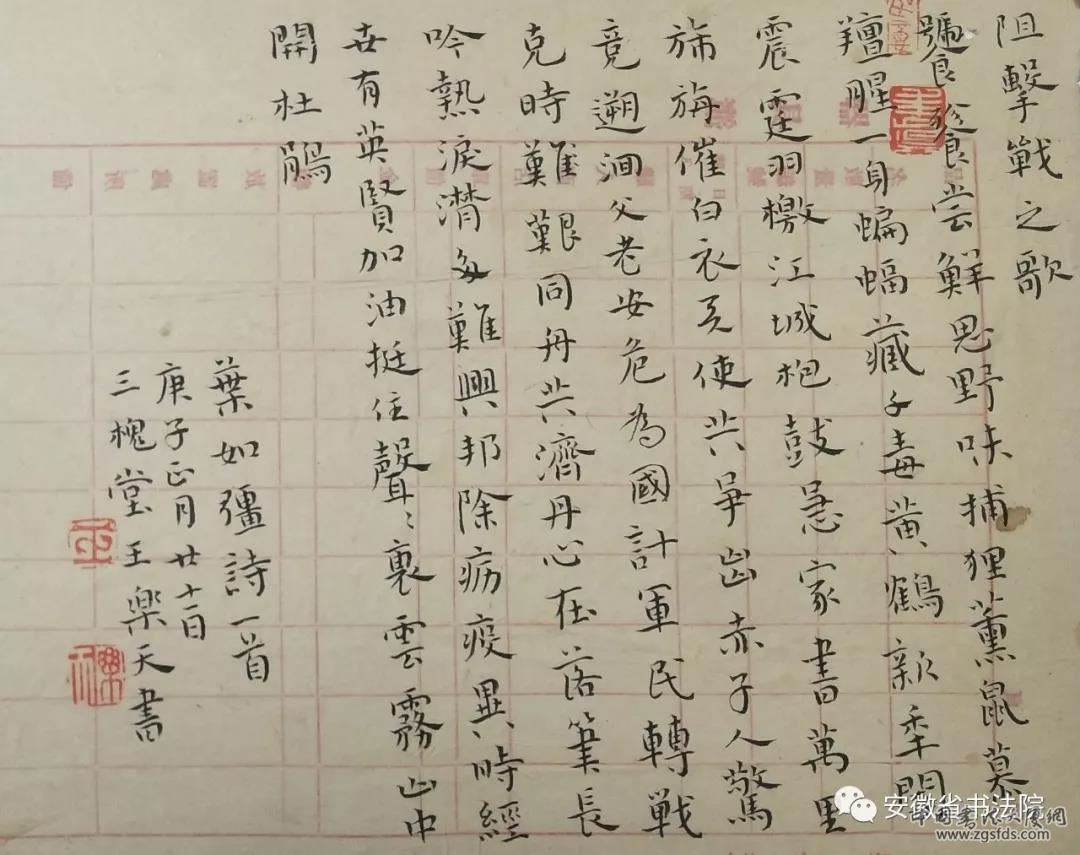 阻擊戰之歌
饕餮嘗鮮思野味捕狸薰鼠慕
羶腥一身蝙蝠藏子毒黄鶴新年聞
震霆羽檄江城枹鼓急家書萬里
旆旃催白衣天使共爭出赤子人驚
竟遡洄父老安危為國計軍民轉戰
克時難艱同舟共濟丹心在落筆長
吟熱淚潸多難興邦除疠疫異時經
世有英賢加油挺住聲〻裏雲霧山中
開杜鵑
葉如彊詩一首
庚子正月廿六日
三槐堂王樂天書
安徽省书法院
中国书法大厦網
www.zgsfds.com